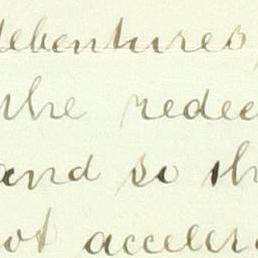 debentures,
the redee
and so th
ot acceler